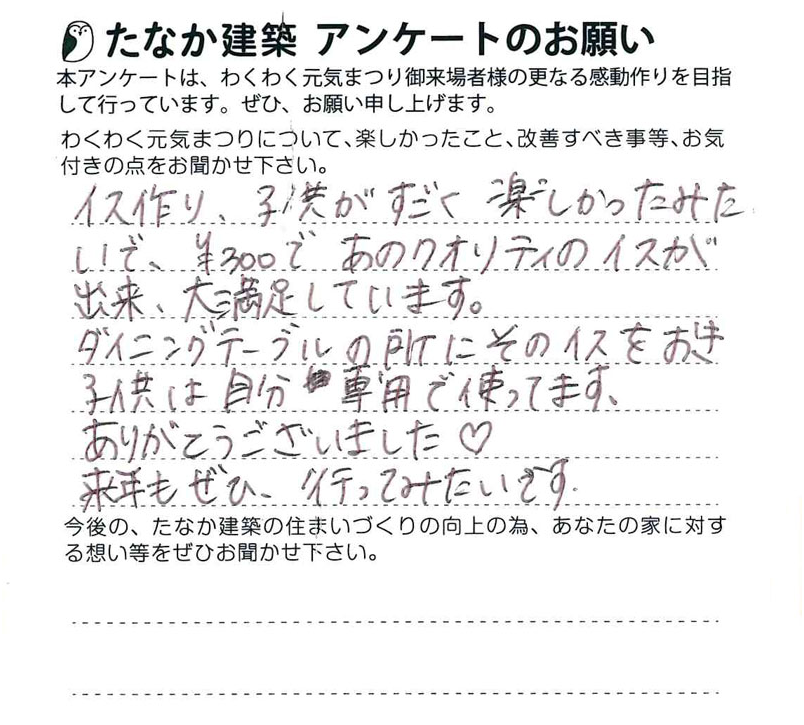 たなか建築 アンケートのお願い
本アンケートは、わくわく元気まつり御来場者様の更なる感動作りを目指
して行っています。ぜひ、お願い申し上げます。
わくわく元気まつりについて、楽しかったこと、改善すべき事等、お気
付きの点をお聞かせ下さい。
イス作り、子供がすごく楽しかったみた
いで、¥300であのクオリティのイスが
出来、大満足しています。
ダイニングテーブルの所にそのイスをおき
子供は自分専用で使ってます、
ありがとうございました♡
来年もぜひ、行ってみたいです.
今後の、たなか建築の住まいづくりの向上の為、あなたの家に対す
る想い等をぜひお聞かせ下さい。